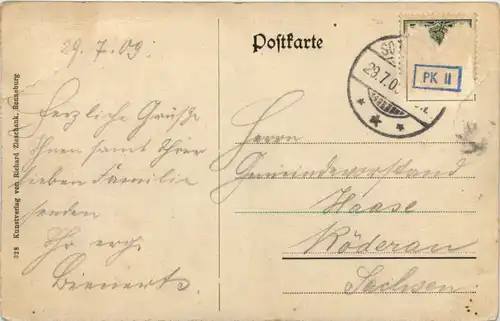 29.7.09.
Postkarte
SO
29.7.0
PK II
Herzliche Grüße
Ihnen samt Ihrer
lieben Familie
senden
Ihr erg.
Bienerts.
Herrn
Gemeindevorstand
Haase
Röderau
Sachsen.
328 Kunstverlag von Richard Zieschank, Sonneburg